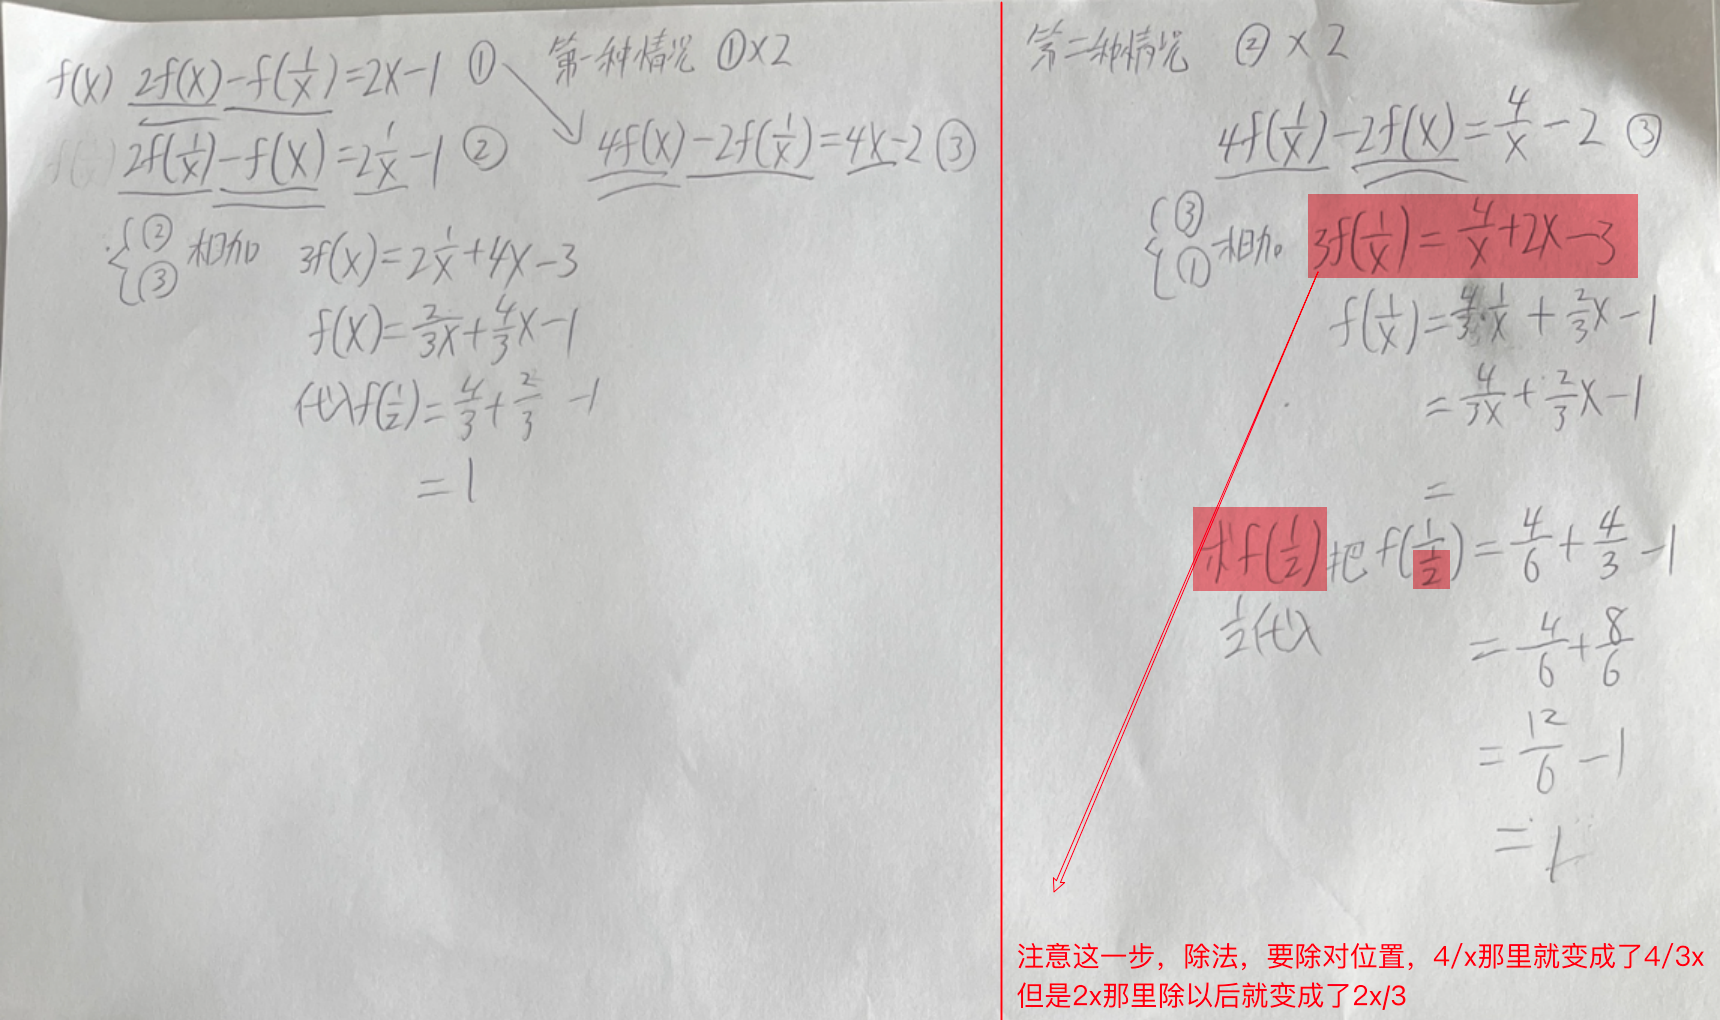 f(x) 2f(x)-f(1/x)=2x-1 ①
f(x) 2f(1/x)-f(x)=2 1/x-1 ②
第一种情况 ①×2
4f(x)-2f(1/x)=4x-2 ③
{② ③ 相加 3f(x)=2 1/x+4x-3
f(x)=2/3x+4/3x-1
代入f(1/2)=4/3+2/3 -1
=1
第二种情况 ②×2
4f(1/x)-2f(x)=4/x-2 ③
{③ ① 相加 3f(1/x)=4/x+2x-3
f(1/x)=4/3·1/x+2/3x-1
=4/3x+2/3x-1
=
求f(1/2)把f(1/(1/2))=4/6+4/3-1
1/2代入
=4/6+8/6
=12/6-1
=1
注意这一步，除法，要除对位置，4/x那里就变成了4/3x
但是2x那里除以后就变成了2x/3